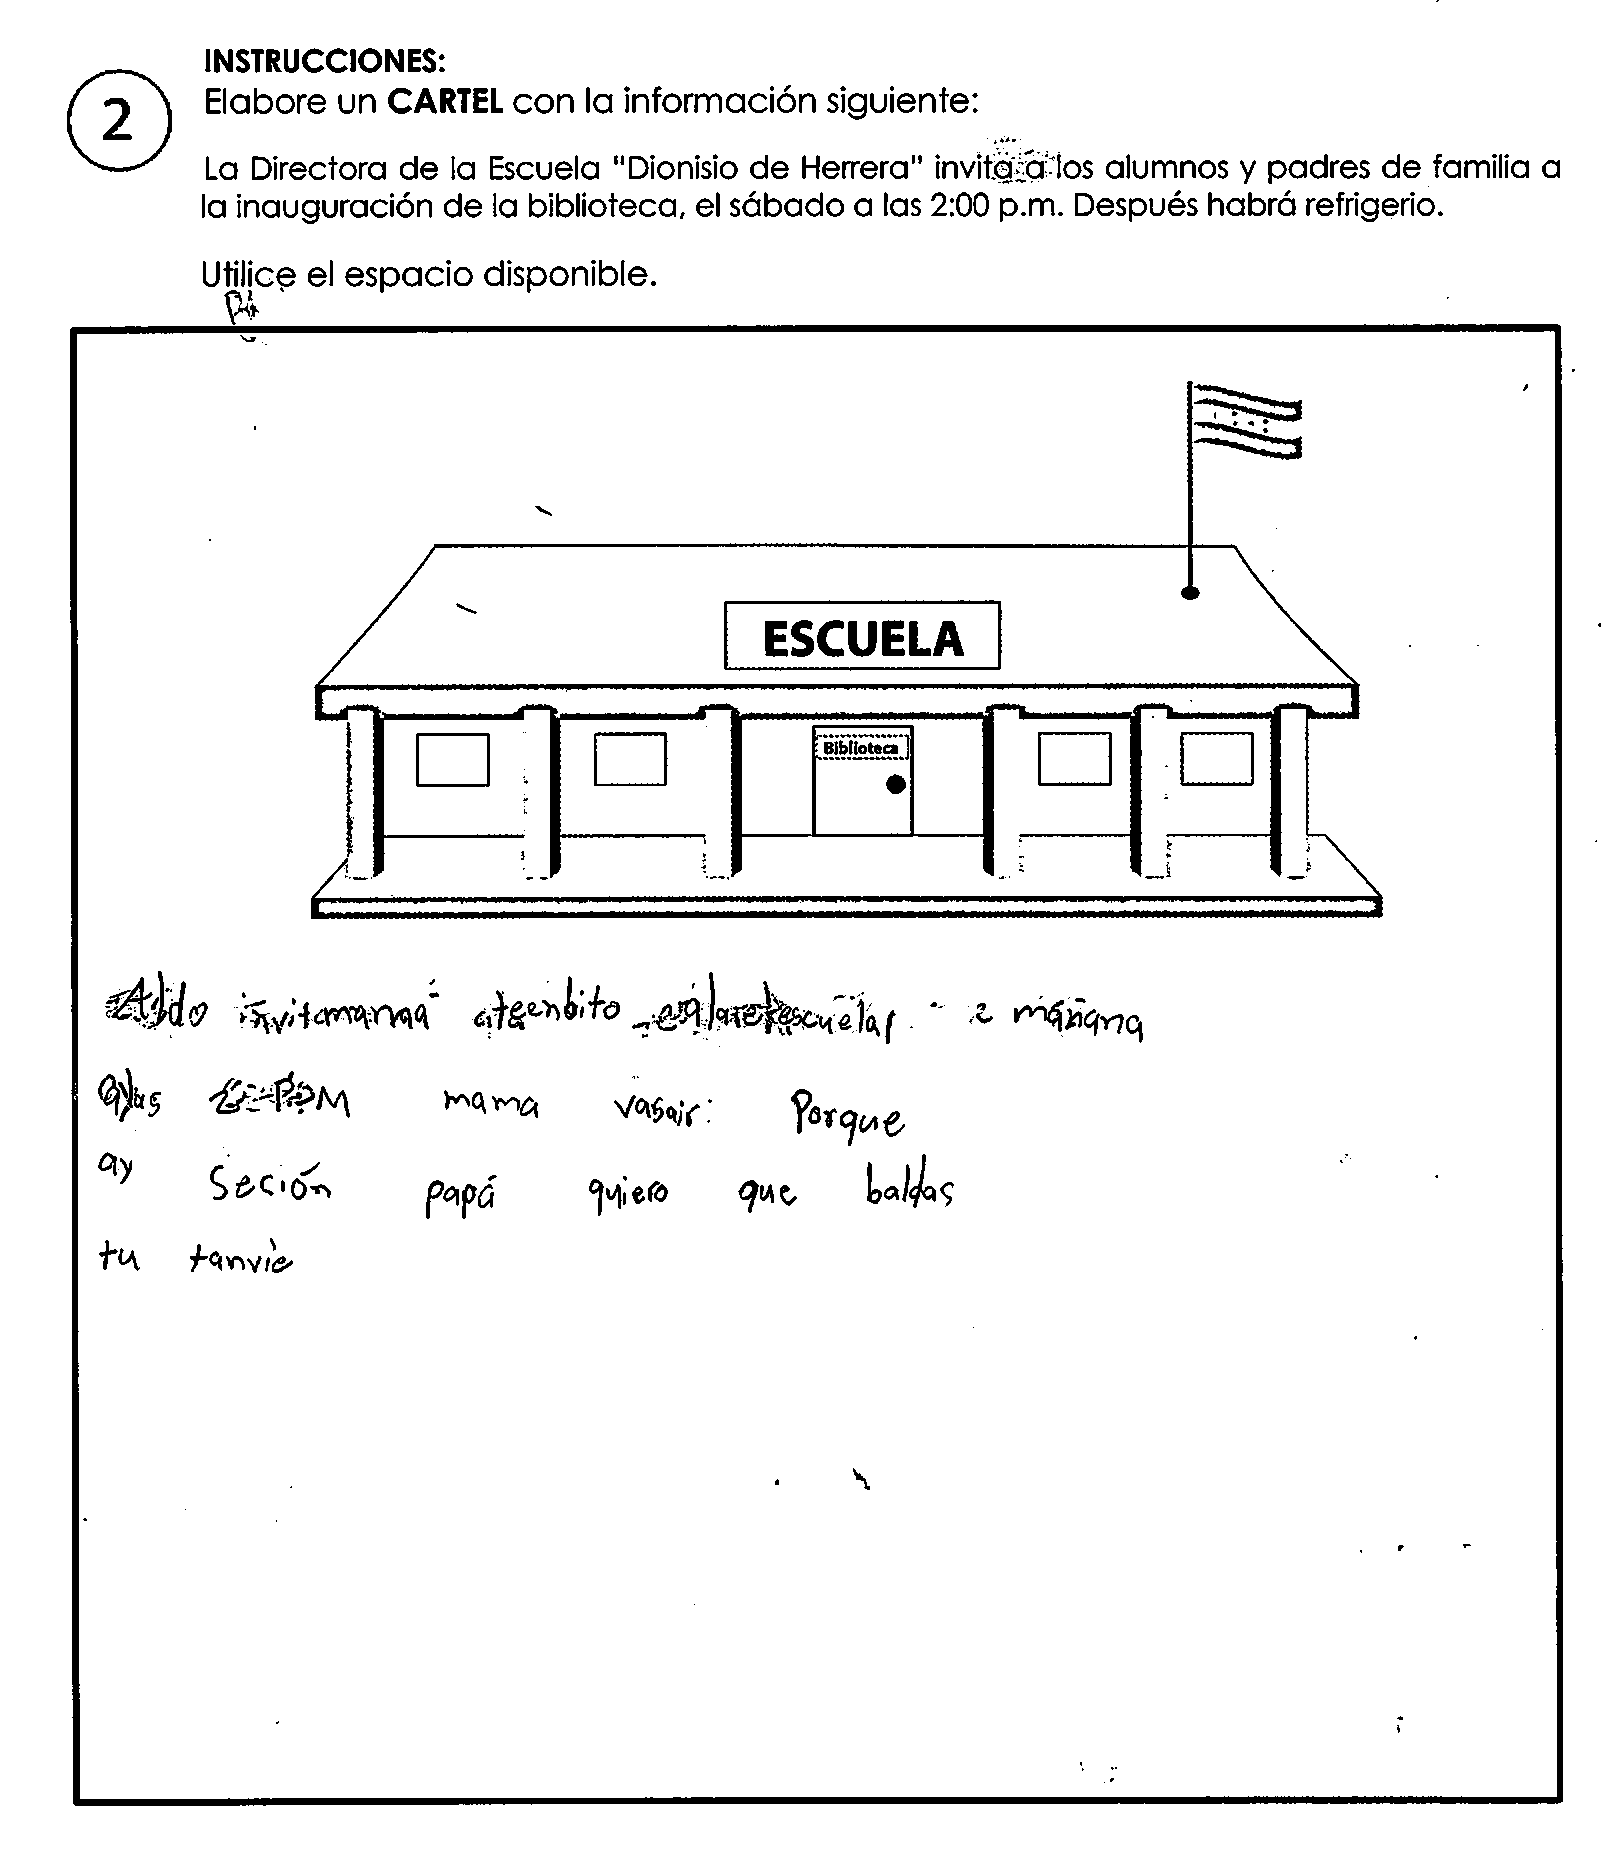 INSTRUCCIONES:
2
Elabore un CARTEL con la información siguiente:
La Directora de la Escuela "Dionisio de Herrera" invita a los alumnos y padres de familia a
la inauguración de la biblioteca, el sábado a las 2:00 p.m. Después habrá refrigerio.
Utilice el espacio disponible.
ESCUELA
Biblioteca
mañana
mama vasair: Porque
ay Seción papá quiero que baldas
tu tanvie